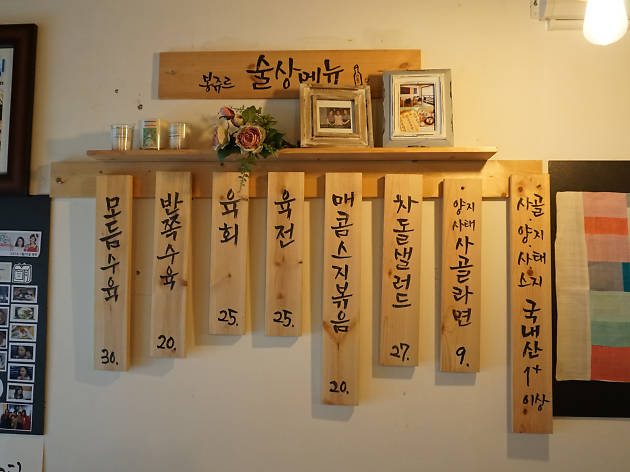 봉쥬르 술상메뉴
모듬수육 30.
반쪽수육 20.
육회 25.
육전 25.
매콤스지볶음 20.
차돌샐러드 27.
양지
사태
사골라면 9.
사골
양지
사태
스지
국내산 1+ 이상